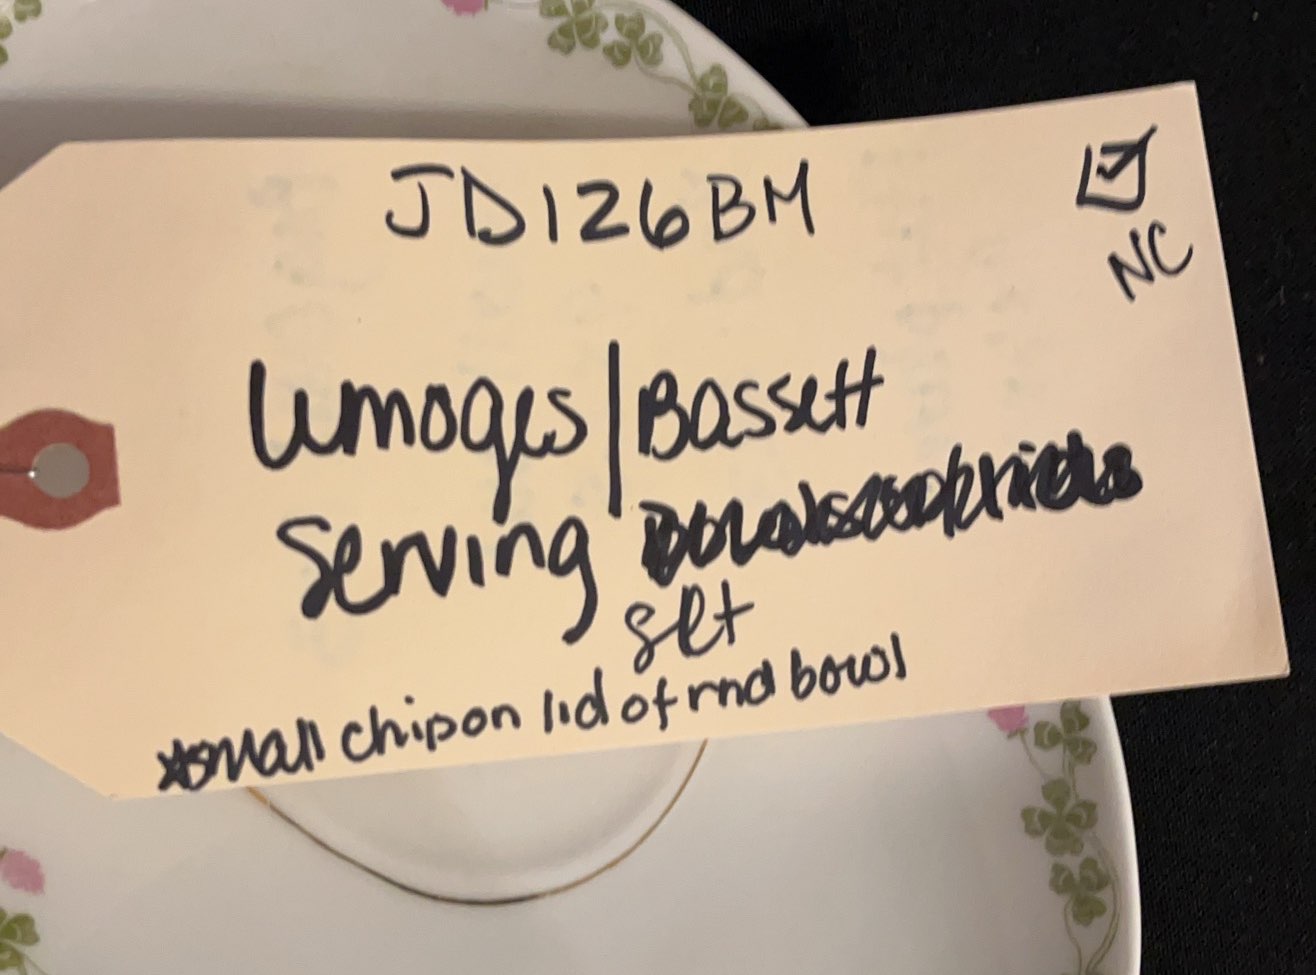 JD126BM
NC
Limoges|Bassett
Serving
set
*small chip on lid of rnd bowl